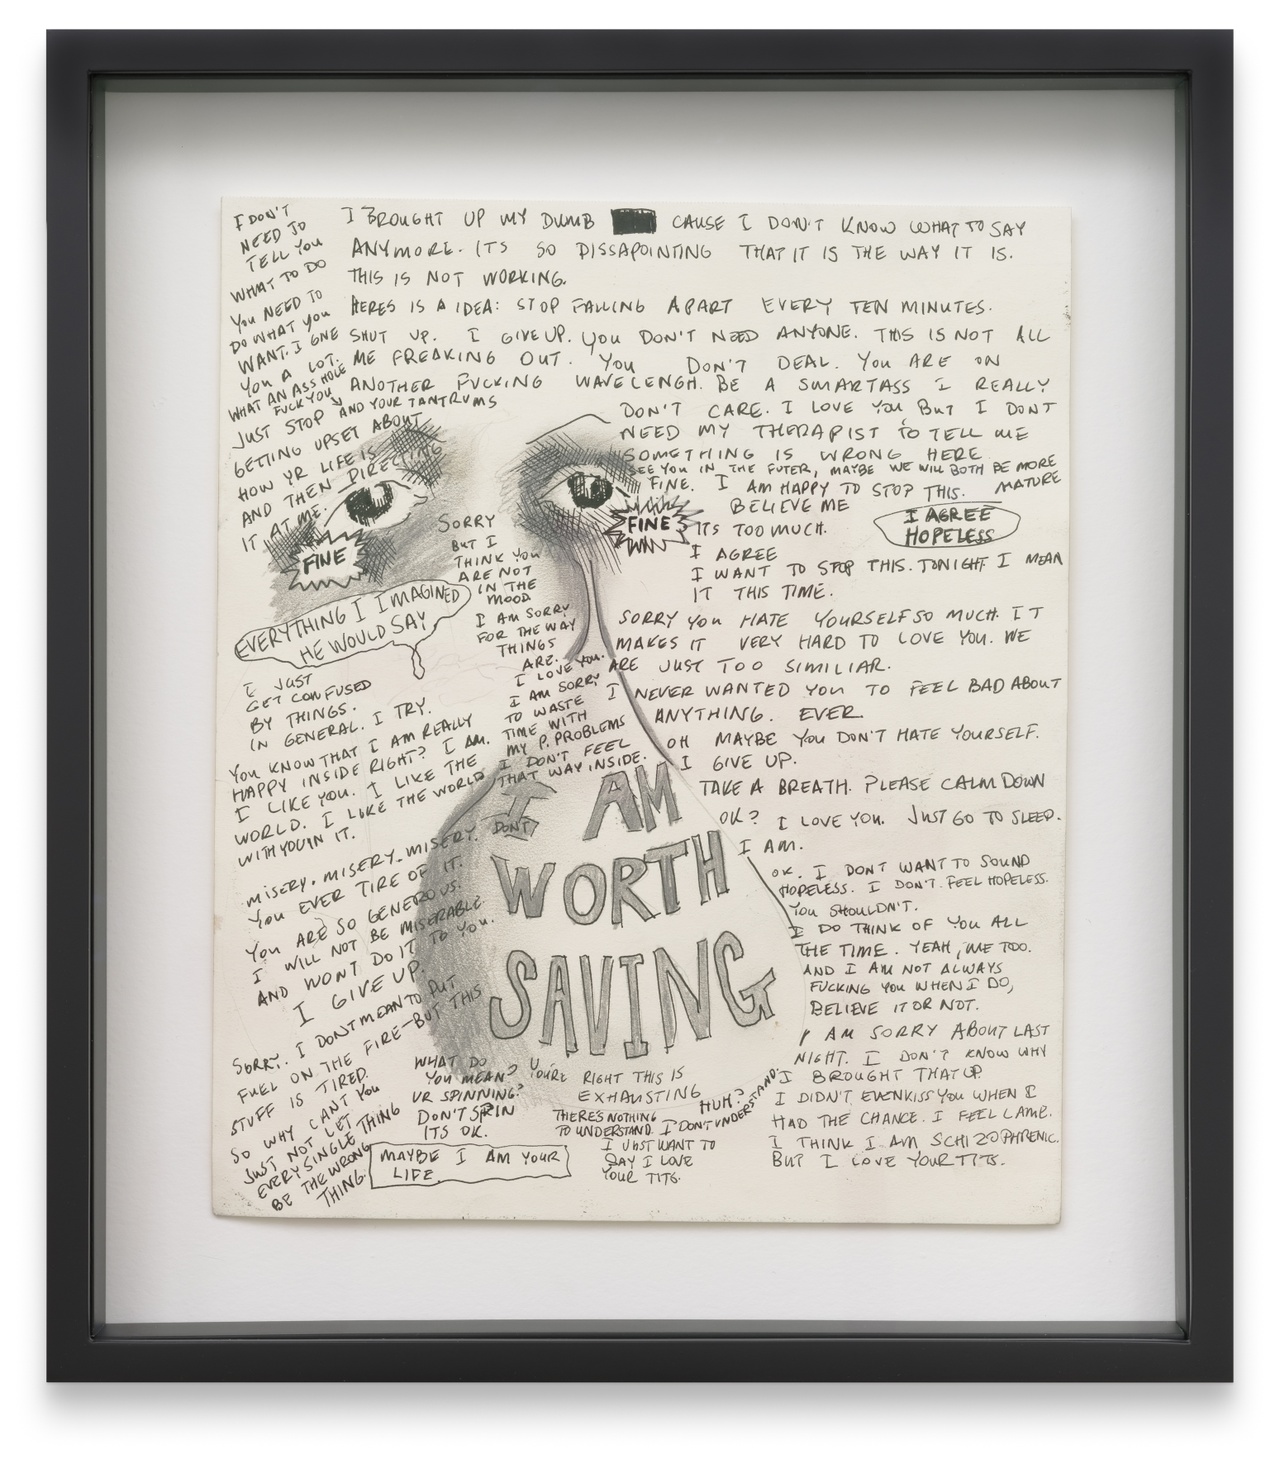 I DON'T
NEED TO
TELL YOU
WHAT TO DO
YOU NEED TO
DO WHAT YOU
WANT. I GIVE
YOU A LOT.
WHAT AN ASS HOLE
FUCK YOU
AND YOUR TANTRUMS
JUST STOP
GETTING UPSET ABOUT
HOW YR LIFE IS
AND THEN DIRECTING
IT AT ME.
FINE
I BROUGHT UP MY DUMB CAUSE I DON'T KNOW WHAT TO SAY
ANYMORE. ITS SO DISSAPOINTING THAT IT IS THE WAY IT IS.
THIS IS NOT WORKING.
HERES IS A IDEA: STOP FALLING APART EVERY TEN MINUTES.
SHUT UP. I GIVE UP. YOU DON'T NEED ANYONE. THIS IS NOT ALL
ME FREAKING OUT. YOU DON'T DEAL. YOU ARE ON
ANOTHER FUCKING WAVELENGH. BE A SMARTASS I REALLY
DON'T CARE. I LOVE YOU BUT I DONT
NEED MY THERAPIST TO TELL ME
SOMETHING IS WRONG HERE
SEE YOU IN THE FUTER, MAYBE WE WILL BOTH BE MORE
MATURE
FINE. I AM HAPPY TO STOP THIS.
BELIEVE ME
FINE
ITS TOO MUCH.
I AGREE
HOPELESS
I AGREE
I WANT TO STOP THIS. TONIGHT I MEAN
IT THIS TIME.
SORRY YOU HATE YOURSELF SO MUCH. IT
MAKES IT VERY HARD TO LOVE YOU. WE
ARE JUST TOO SIMILIAR.
I NEVER WANTED YOU TO FEEL BAD ABOUT
ANYTHING. EVER.
OH MAYBE YOU DON'T HATE YOURSELF.
I GIVE UP.
TAKE A BREATH. PLEASE CALM DOWN
OK? I LOVE YOU. JUST GO TO SLEEP.
I AM.
OK. I DONT WANT TO SOUND
HOPELESS. I DON'T FEEL HOPELESS.
YOU SHOULDN'T.
I DO THINK OF YOU ALL
THE TIME. YEAH, ME TOO.
AND I AM NOT ALWAYS
FUCKING YOU WHEN I DO,
BELIEVE IT OR NOT.
I AM SORRY ABOUT LAST
NIGHT. I DON'T KNOW WHY
I BROUGHT THAT UP.
I DIDN'T EVEN KISS YOU WHEN I
HAD THE CHANCE. I FEEL LAME.
I THINK I AM SCHIZOPHRENIC.
BUT I LOVE YOUR TITS.
SORRY
BUT I
THINK YOU
ARE NOT
IN THE
MOOD
I AM SORRY
FOR THE WAY
THINGS
ARE.
I LOVE YOU.
I AM SORRY
TO WASTE
TIME WITH
MY P. PROBLEMS
I DON'T FEEL
THAT WAY INSIDE.
EVERYTHING I IMAGINED
HE WOULD SAY
I JUST
GET CONFUSED
BY THINGS.
IN GENERAL. I TRY.
YOU KNOW THAT I AM REALLY
HAPPY INSIDE RIGHT? I AM.
I LIKE YOU. I LIKE THE
WORLD. I LIKE THE WORLD
WITH YOU IN IT.
MISERY. MISERY. MISERY. DON'T
YOU EVER TIRE OF IT.
YOU ARE SO GENEROUS.
I WILL NOT BE MISERABLE
AND WONT DO IT TO YOU.
I GIVE UP.
SORRY. I DON'T MEAN TO PUT
FUEL ON THE FIRE-BUT THIS
STUFF IS TIRED.
SO WHY CAN'T YOU
JUST NOT LET
EVERY SINGLE THING
BE THE WRONG
THING.
I AM
WORTH
SAVING
WHAT DO
YOU MEAN?
UR SPINNING?
DON'T SPIN
ITS OK.
MAYBE I AM YOUR
LIFE.
YOU'RE RIGHT THIS IS
EXHAUSTING
HUH?
THERE'S NOTHING
TO UNDERSTAND. I DON'T UNDERSTAND.
I JUST WANT TO
SAY I LOVE
YOUR TITS.